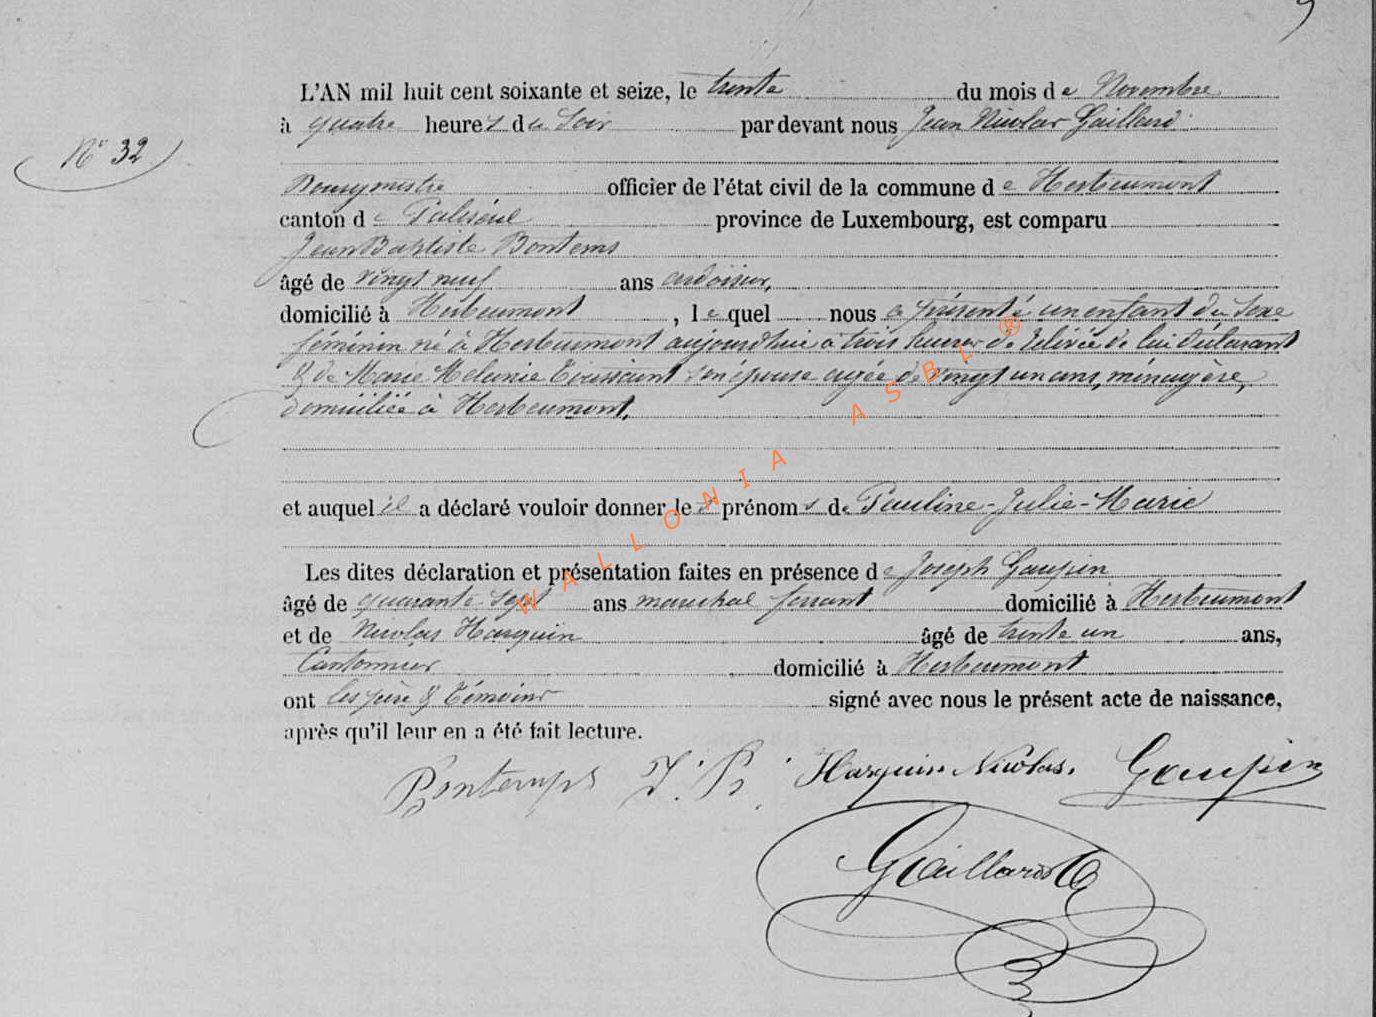 L'AN mil huit cent soixante et seize, le trente du mois de Novembre
à quatre heures du Soir par devant nous Jean Nicolas Gaillard
N° 32
Bourgmestre officier de l'état civil de la commune de Herbeumont
canton de Paliseul province de Luxembourg, est comparu
Jean Baptiste Bontems
âgé de vingt neuf ans ardoisier,
domicilié à Herbeumont, lequel nous a présenté un enfant du Sexe
féminin né à Herbeumont aujourdhui à trois heures de relévée de lui déclarant
& de Marie Mélanie Toussaint son épouse agée de vingt un ans, ménagère,
domiciliée à Herbeumont.
et auquel il a déclaré vouloir donner les prénoms de Pauline-Julie-Marie
Les dites déclaration et présentation faites en présence de Joseph Goupin
âgé de quarante-sept ans marechal ferrant domicilié à Herbeumont
et de Nicolas Harquin âgé de trente un ans,
Cantonnier domicilié à Herbeumont
ont les père & témoins signé avec nous le présent acte de naissance,
après qu'il leur en a été fait lecture.
Bontemps J. B. Harquin Nicolas. Goupin
Gaillard
WALLONIA ASBL ®